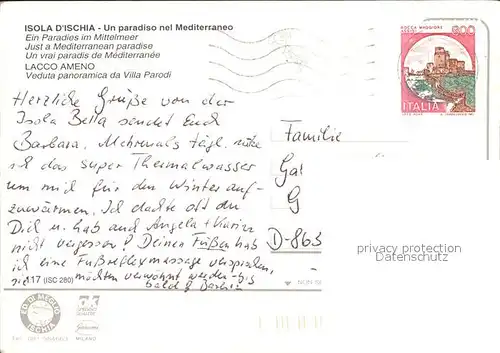 ISOLA D'ISCHIA - Un paradiso nel Mediterraneo
Ein Paradies im Mittelmeer
Just a Mediterranean paradise
Un vrai paradis de Méditerranée
LACCO AMENO
Veduta panoramica da Villa Parodi
ROCCA MAGGIORE
600
ITALIA
Herzliche Grüße von der
Isola Bella sendet Euch
Barbara. Mehrmals tägl.
ich das super Thermalwasser
um mich für den Winter auf-
zuwärmen. Ich dachte oft an
Dich u. hab auch Angela + Karin
nicht vergessen! Deinen Füßen hab
ich eine Fußreflexmassage versprochen,
sie möchten verwöhnt werden - bis
bald
Familie
Ga
G
D-863
privacy protection
Datenschutz
117 (ISC 280)
ED. DI MEGLIO
ISCHIA
MILANO